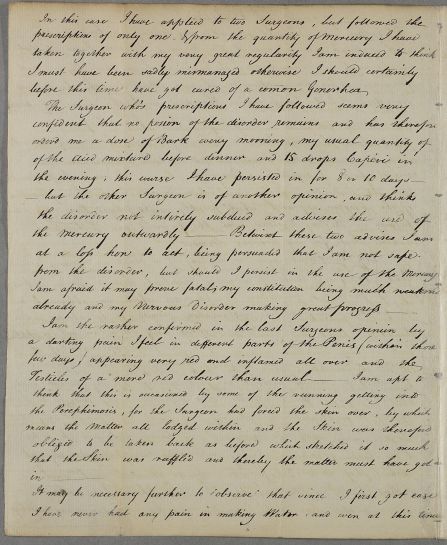 In this case I have applied to two Surgeons, but followed the
prescriptions of only one. & from the quantity of Mercury I have
taken together with my very great regularity I am induced to think
I must have been sadly mismanaged otherwise I should certainly
before this time have got cured of a comon Gonorhea
The Surgeon who's prescriptions I have followed seems very
confident that no poison of the disorder remains and has therefore
orderd me a dose of Bark every morning, my usual quantity of
of the Acid mixture before dinner and 15 drops Capivi in
the evening; this course I have persisted in for 8 or 10 days
but the other Surgeon is of another opinion, and thinks
the disorder not intirely subdued and advises the use of
the Mercury outwardly Betwixt these two advises I am
at a loss how to act, being persuaded that I am not safe
from the disorder, but should I persist in the use of the Mercury
I am afraid it may prove fatal, my constitution being much weakend
already and my Nervous Disorder making great progress
I am the rather confirmed in the last Surgeons openion by
a darting pain I feel in different parts of the Penis (within these
few days) appearing very red and inflamed all over and the
Testicles of a more red colour than usual I am apt to
think that this is occasioned by some of the running getting into
the for the Surgeon had forced the skin over, by which
means the Matter all lodged within and the Skin was thereafter
obliged to be taken back as before which stretched it so much
that the Skin was ruffled and thereby the matter must have got
in
It may be necessary further to observe that since I first got ease
I have never had any pain in making Water and even at this time